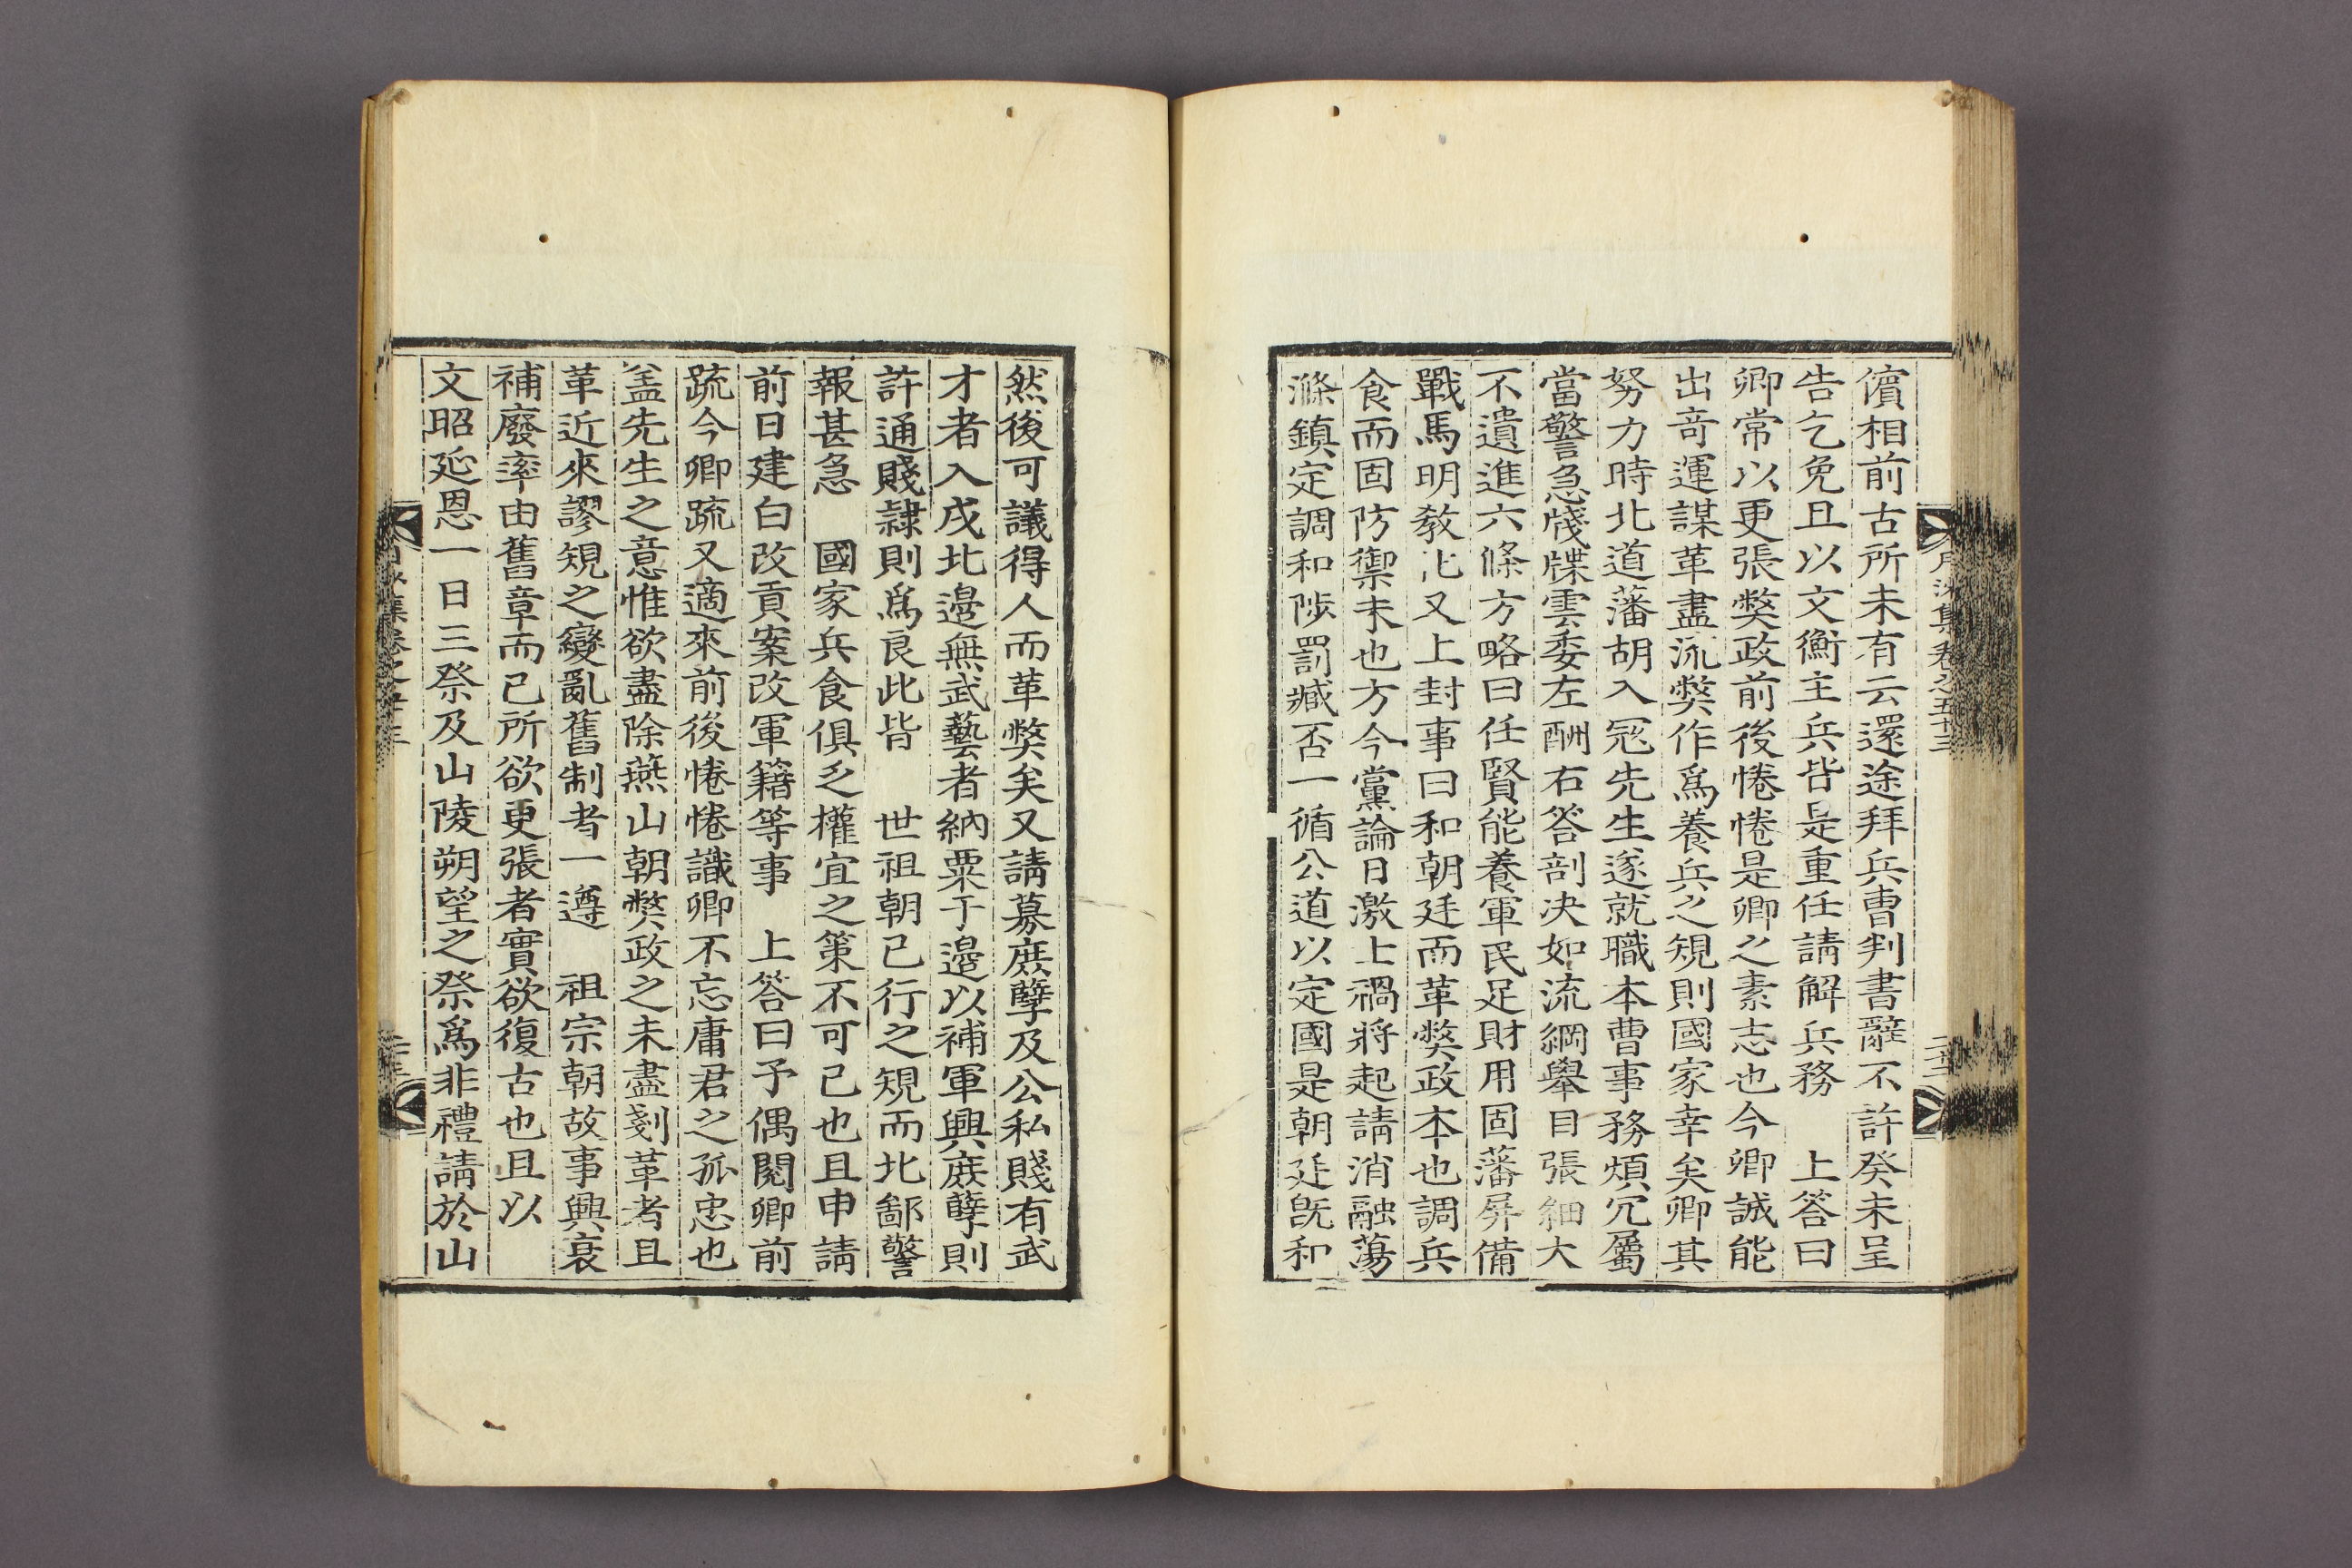 儐相前古所未有云還途拜兵曹判書辭不許癸未呈
告乞免且以文衡主兵皆是重任請解兵務　上答曰
卿常以更張獘政前後惓惓是卿之素志也今卿誠能
出竒運謀革盡流獘作爲養兵之規則國家幸矣卿其
努力時北道藩胡入冦先生遂就職本曹事務煩冗屬
當警急牋牒雲委左酬右答剖决如流綱舉目張細大
不遺進六條方略曰任賢能養軍民足財用固藩屏備
戰馬明教化又上封事曰和朝廷而革獘政本也調兵
食而固防禦末也方今黨論日激士禍將起請消融蕩
滌鎮定調和陟罰臧否一循公道以定國是朝廷旣和
然後可議得人而革獘矣又請募庶孽及公私賤有武
才者入戍北邊無武藝者納粟于邊以補軍興庶孽則
許通賤隷則爲良此皆　世祖朝已行之規而北鄙警
報甚急　國家兵食俱乏權宜之策不可已也且申請
前日建白改貢案改軍籍等事　上答曰予偶閱卿前
疏今卿疏又適來前後惓惓識卿不忘庸君之孤忠也
盖先生之意惟欲盡除燕山朝獘政之未盡剗革者且
革近來謬規之變亂舊制者一遵　祖宗朝故事興衰
補廢率由舊章而已所欲更張者實欲復古也且以
文昭延恩一日三祭及山陵朔望之祭爲非禮請於山
集卷之五十三